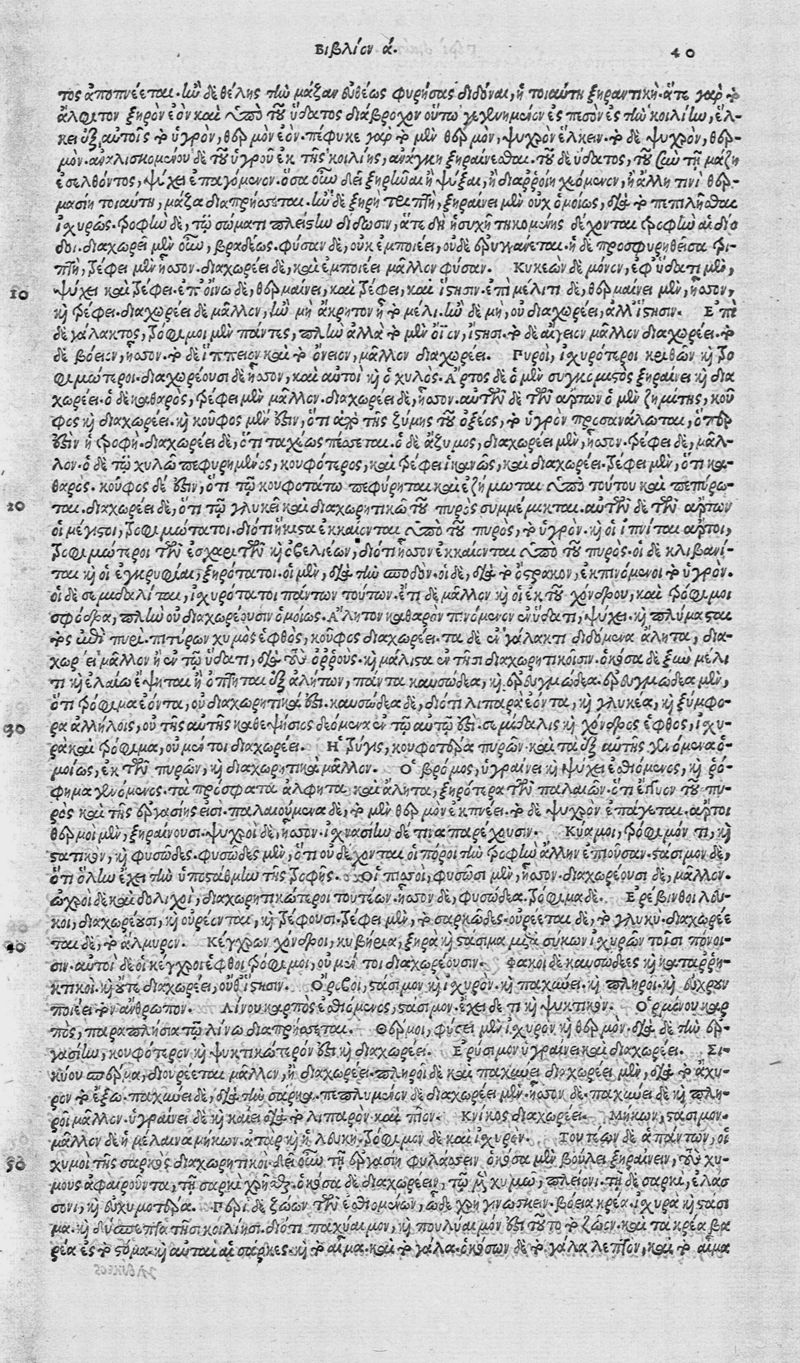 Βιβλίον ά. 40
τος ἀποπνέεται. ἢν δὲ θέλης τὴν μᾶζαν εὐθέως φυρήσας διδόναι, ἡ τοιαύτη ξηραντική. ἅτε γὰρ τὸ
ἄλφιτον ξηρὸν ἐὸν καὶ ὑπὸ τοῦ ὕδατος διάβροχον οὔπω γεγενημένον ἐς πεσὸν ἐς τὴν κοιλίην, ἕλ-
κει ἐξ αὐτοῖς τὸ ὑγρὸν, θερμὸν ἐόν. πέφυκε γὰρ τὸ μὲν θερμὸν, ψυχρὸν ἕλκειν. τὸ δὲ ψυχρὸν, θερ-
μόν. ἀναλισκομένου δὲ τοῦ ὑγροῦ ἐκ τῆς κοιλίης, ἀνάγκη ξηραίνεσθαι. τοῦ δὲ ὕδατος, τοῦ ξὺν τῇ μάζῃ
ἐσελθόντος, ψύχει ἐπαγόμενον. ὅσα οὖν δεῖ ξηρῆναι ἢ ψύξαι, ἢ διαρροίῃ χεόμενον, ἢ ἄλλῃ τινὶ θερ-
μασίῃ τοιαύτῃ, μᾶζα διαπρήσσεται. ἢν δὲ ξηρὴ τριπτὴ, ξηραίνει μὲν οὐχ ὁμοίως, διὰ τὸ πεπιλῆσθαι
ἰχυρῶς. τροφὴν δὲ, τῷ σώματι πλείστην δίδωσιν, ἅτε δὴ ἡσυχῆ τηκομένης δέχονται τροφὴν αἱ δίο
δοι. διαχωρεῖ μὲν οὖν, βραδέως. φύσαν δὲ, οὐκ ἐμποιέει, οὐδὲ ἐρυγγάνεται. ἡ δὲ προσφυρηθεῖσα τρι-
πτὴ, τρέφει μὲν ἧσσον. διαχωρεῖ δὲ, καὶ ἐμποιέει μᾶλλον φύσαν. Κυκεὼν δὲ μόνον, ἐφ' ὕδατι μὲν,
10 ψύχει καὶ τρέφει. ἐπ' οἴνῳ δὲ, θερμαίνει, καὶ τρέφει, καὶ ἵστησιν. ἐπὶ μέλιτι δὲ, θερμαίνει μὲν, ἧσσον,
κὴ τρέφει. διαχωρέει δὲ μᾶλλον, ἢν μὴ ἄκρητον ᾖ τὸ μέλι. ἢν δὲ μὴ, οὐ διαχωρέει, ἀλλ' ἵστησιν. Ἐπὶ
δὲ γάλακτος, τρόφιμοι μὲν πάντες, πλὴν ἀλλὰ τὸ μὲν ὄϊον, ἵστησι. τὸ δὲ αἴγειον μᾶλλον διαχωρέει. τὸ
δὲ βόειον, ἧσσον. τὸ δὲ ἵππειον καὶ τὸ ὄνειον, μᾶλλον διαχωρέει. Πυροὶ, ἰχυρότεροι κριθῶν καὶ τρο
φιμώτεροι. διαχωρέουσι δὲ ἧσσον, καὶ αὐτοὶ καὶ ὁ χυλός. Ἄρτος δὲ ὁ μὲν συγκομιστὸς ξηραίνει καὶ δια
χωρέει. ὁ δὲ καθαρὸς, τρέφει μὲν μᾶλλον. διαχωρέει δὲ, ἧσσον. αὐτῶν δὲ τῶν ἄρτων ὁ μὲν ζημίτης, κοῦ
φος καὶ διαχωρέει. καὶ κοῦφος μὲν ἐστὶν, ὅτι ἀπὸ τῆς ζύμης τοῦ ὀξέος, τὸ ὑγρὸν προσανάλωται, ὅπερ
ἐστὶν ἡ τροφή. διαχωρέει δὲ, ὅτι ταχέως πέσσεται. ὁ δὲ ἄζυμος, διαχωρέει μὲν, ἧσσον. τρέφει δὲ, μᾶλ-
λον. ὁ δὲ τῷ χυλῷ πεφυρημένος, κουφότερος, καὶ τρέφει ἱκανῶς, καὶ διαχωρέει. τρέφει μὲν, ὅτι κα-
θαρός. κοῦφος δέ ἐστιν, ὅτι τῷ κουφοτάτῳ πεφύρηται καὶ ἐζήμωται ὑπὸ τούτου καὶ πεπύρω-
20 ται. διαχωρέει δὲ, ὅτι τῷ γλυκεῖ καὶ διαχωρητικῷ τοῦ πυρὸς συμμέμικται. αὐτῶν δὲ τῶν ἄρτων
οἱ μέγιστοι, τροφιμώτατοι. διότι ἥκιστα ἐκκαίονται ὑπὸ τοῦ πυρὸς, τὸ ὑγρόν. καὶ οἱ ἰπνῖται ἄρτοι,
τροφιμώτεροι τῶν ἐσχαριτῶν καὶ ὀβελιέων, διότι ἧσσον ἐκκαίονται ὑπὸ τοῦ πυρός. οἱ δὲ κλιβανῖ-
ται καὶ οἱ ἐγκρυφίαι, ξηρότατοι. οἱ μὲν, διὰ τὴν σποδόν. οἱ δὲ, διὰ τὸ ὄστρακον, ἐκπινόμενοι τὸ ὑγρόν.
οἱ δὲ σεμιδαλῖται, ἰχυρότατοι πάντων τουτέων. ἔτι δὲ μᾶλλον καὶ οἱ ἐκ τοῦ χόνδρου, καὶ τρόφιμοι
σφόδρα, πλὴν οὐ διαχωρέουσιν ὁμοίως. Ἄλητον καθαρὸν πινόμενον ἐν ὕδατι, ψύχει. καὶ πλύμα σται
τὸς ἐπὶ πυρί. πιτύρων χυμὸς ἑφθὸς, κοῦφος διαχωρέει. τὰ δὲ ἐν γάλακτι διδόμενα ἄλητα, δια-
χωρέει μᾶλλον ἢ ἐν τῷ ὕδατι, διὰ τοὺς ὀῤῥούς. καὶ μάλιστα ἐν τῇσι διαχωρητικοῖσιν. ὁκόσα δὲ ξὺν μέλι
τι καὶ ἐλαίῳ ἕψηται ἢ ὀπτῆται ἐξ ἀλήτων, πάντα καυσώδεα, καὶ ἐρευγμώδεα. ἐρευγμώδεα μὲν,
ὅτι τρόφιμα ἐόντα, οὐ διαχωρητικά ἐστι. καυσώδεα δὲ, διότι λιπαρὰ ἐόντα, καὶ γλυκέα, καὶ ξύμφο-
30 ρα ἀλλήλοις, οὐ τῆς αὐτῆς καθεψήσιος δεόμενα ἐν τῷ αὐτῷ ἐστι. σεμίδαλις καὶ χόνδρος ἑφθὸς, ἰχυ-
ρὰ καὶ τρόφιμα, οὐ μέντοι διαχωρέει. Ἡ τρύγις, κουφοτέρα πυρῶν. καὶ τὰ ἐξ αὐτῆς γινόμενα ὁ-
μοίως, ἐκ τῶν πυρῶν, καὶ διαχωρητικὰ μᾶλλον. Ὁ βρόμος, ὑγραίνει καὶ ψύχει ἐσθιόμενος, καὶ ῥό-
φημα γινόμενος. τὰ πρόσφατα ἄλφητα καὶ ἄλητα, ξηρότερα τῶν παλαιῶν. ὅτι ἔγγιον τοῦ πυ-
ρὸς καὶ τῆς ἐργασίης εἰσί. παλαιούμενα δὲ, τὸ μὲν θερμὸν ἐκπνέει. τὸ δὲ ψυχρὸν ἐπάγεται. ἄρτοι
θερμοὶ μὲν, ξηραίνουσι. ψυχροὶ δὲ, ἧσσον. ἰχνασίην δέ τινα παρέχουσιν. Κύαμοι, τρόφιμόν τι, καὶ
στατικὸν, καὶ φυσῶδες. φυσῶδες μὲν, ὅτι οὐ δέχονται οἱ πόροι τὴν τροφὴν ἅλην ἐπιοῦσαν. στάσιμον δὲ,
ὅτι ὀλίγην ἔχει τὴν ὑποστάθμην τῆς τροφῆς. Οἱ πισοὶ, φυσῶσι μὲν, ἧσσον. διαχωρέουσι δὲ, μᾶλλον.
ὠχροὶ δὲ καὶ δολιχοὶ, διαχωρητικώτεροι τουτέων. ἧσσον δὲ, φυσώδεα. τρόφιμα δέ. Ἐρέβινθοι λευ-
κοὶ, διαχωρέουσι, καὶ οὐρέονται, καὶ τρέφουσι. τρέφει μὲν, τὸ σαρκῶδες. οὐρέεται δὲ, τὸ γλυκύ. διαχωρέε
40 ται δὲ, τὸ ἁλμυρόν. Κέγχρων χόνδροι, κυβήρια, ξηρὰ καὶ στάσιμα μετὰ σύκων ἰχυρῶν τοῖσι πόνοι-
σιν. αὐτοὶ δὲ οἱ κέγχροι ἑφθοὶ τρόφιμοι, οὐ μέντοι διαχωρέουσιν. Φακοὶ δὲ καυσώδεες καὶ καταῤῥη-
κτικοί. καὶ οὔτε διαχωρέει, οὔθ' ἵστησιν. Ὄροβοι, στάσιμον καὶ ἰχυρὸν. καὶ παχύνει. καὶ πληροῖ. καὶ εὔχρουν
ποιέει τὸν ἄνθρωπον. Λίνου καρπὸς ἐσθιόμενος, στάσιμον. ἔχει δέ τι καὶ ψυκτικόν. Ὁρμίνου καρ
πὸς, παραπλήσια τῷ λίνῳ διαπρήσσεται. Θέρμοι, φύσει μὲν ἰχυρὸν καὶ θερμόν. διὰ δὲ τὴν ἐρ-
γασίην, κουφότερον καὶ ψυκτικώτερόν ἐστι καὶ διαχωρέει. Ἐρύσιμον ὑγραίνει καὶ διαχωρέει. Σι-
κύου σπέρμα, διουρέεται μᾶλλον, ἢ διαχωρέει. πληροῖ δὲ καὶ παχύνει διαχωρέει μὲν, διὰ τὸ ἄχυ-
ρον τὸ ἔξω. παχύνει δὲ, διὰ τὴν σάρκα. πεπλυμένον δὲ διαχωρέει μὲν. ἧσσον δὲ. παχύνει δὲ καὶ πλη-
ροῖ μᾶλλον. ὑγραίνει δὲ καὶ καίει διὰ τὸ λιπαρὸν καὶ πῖον. Κνῖκος διαχωρέει. Μήκων, στάσιμον.
μᾶλλον δὲ ἡ μέλαινα μήκων. ἀτὰρ καὶ ἡ λευκή. τρόφιμον δὲ καὶ ἰχυρόν. Τουτέων δὲ ἁπάντων, οἱ
50 χυμοὶ τῆς σαρκὸς διαχωρητικοί. δεῖ οὖν τῇ ἐργασίῃ φυλάσσειν ὁκόσα μὲν βούλει ξηραίνειν, τοὺς χυ-
μοὺς ἀφαιροῦντα, τῇ σαρκὶ χρῆσθαι. ὁκόσα δὲ διαχωρέειν, τῷ μὲν χυμῷ, πλείονι. τῇ δὲ σαρκὶ, ἐλάσ
σονι, καὶ εὐχυμοτέρᾳ. Περὶ δὲ ζώων τῶν ἐσθιομένων, ὧδε χρὴ γινώσκειν. βόεια κρέα ἰχυρὰ καὶ στάσι
μα. καὶ δύσπεπτα τῇσι κοιλίῃσι. διότι παχύαιμον, καὶ πουλύαιμόν ἐστι τοῦτο τὸ ζῶον. καὶ τὰ κρέα βα
ρέα ἐς τὸ στόμα. καὶ αὐταὶ αἱ σάρκες. καὶ τὸ αἷμα. καὶ τὸ γάλα. ὁκόσων δὲ τὸ γάλα λεπτὸν, καὶ τὸ αἷμα